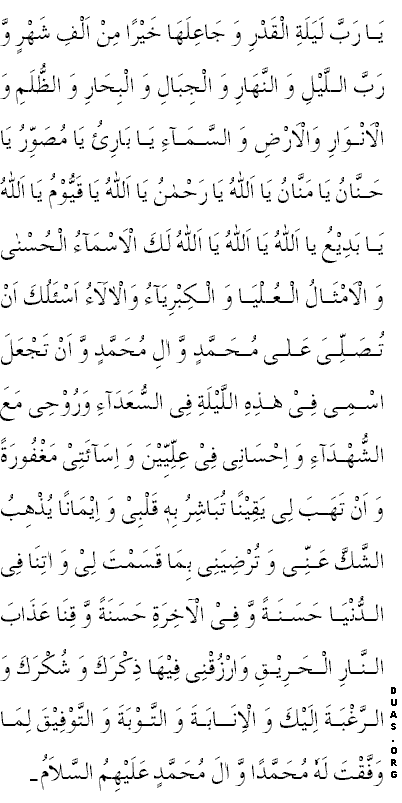 يَا رَبَّ لَيْلَةِ الْقَدْرِ وَ جَاعِلَهَا خَيْرًا مِنْ اَلْفِ شَهْرٍ وَّ
رَبَّ الَّليْلِ وَ النَّهَارِ وَ الْجِبَالِ وَ الْبِحَارِ وَ الظُّلَمِ وَ
الْاَنْوَارِ وَالْاَرْضِ وَ السَّمَآءِ يَا بَارِئُ يَا مُصَوِّرُ يَا
حَنَّانُ يَا مَنَّانُ يَا اَللهُ يَا رَحْمٰنُ يَا اَللهُ يَا قَيُّوْمُ يَا اَللهُ
يَا بَدِيْعُ يا اَللهُ يَا اَللهُ يَا اَللهُ لَكَ الْاَسْمَآءُ الْحُسْنٰى
وَ الْاَمْثَالُ الْعُلْيَا وَ الْكِبْرِيَآءُ وَالْاٰلَآءُ اَسْئَلُكَ اَنْ
تُصَلِّىَ عَلٰى مُحَمَّدٍ وَّ اٰلِ مُحَمَّدٍ وَّ اَنْ تَجْعَلَ
اسْمِىْ فِىْ هٰذِهِ اللَّيْلَةِ فِى السُّعَدَآءِ وَرُوْحِى مَعَ
الشُّهْدَآءِ وَ اِحْسَانِى فِىْ عِلِّيِّيْنَ وَ اِسَآئَتِىْ مَغْفُورَةً
وَ اَنْ تَهَبَ لِى يَقِيْنًا تُبَاشِرُ بِهٖ قَلْبِىْ وَ اِيْمَانًا يُذْهِبُ
الشَّكَّ عَنِّى وَ تُرْضِيَنِى بِمَا قَسَمْتَ لِىْ وَ اٰتِنَا فِى
الدُّنْيَا حَسَنَةً وَّ فِىْ الْاٰخِرَةِ حَسَنَةً وَّ قِنَا عَذَابَ
النَّارِ الْحَرِيْقِ وَارْزُقْنِى فِيْهَا ذِكْرَكَ وَ شُكْرَكَ وَ
الرَّغْبَةَ اِلَيْكَ وَ الْاِنَابَةَ وَ التَّوْبَةَ وَ التَّوْفِيْقَ لِمَا
وَفَّقْتَ لَهٗ مُحَمَّدًا وَّ اٰلَ مُحَمَّدٍ عَلَيْهِمُ السَّلاَمُ۔
DUAS.ORG